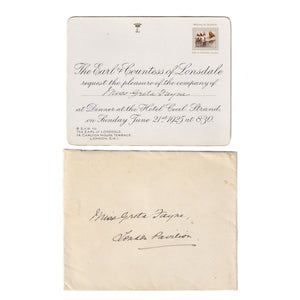 The Earl & Countess of Lonsdale
request the pleasure of the company of
Miss Greta Fayne
at Dinner at the Hotel Cecil, Strand,
on Sunday June 21st 1925 at 8.30.
R.S.V.P. to
The Earl of Lonsdale,
14 Carlton House Terrace,
London, S.W.1.
Miss Greta Fayne,
London Pavilion.